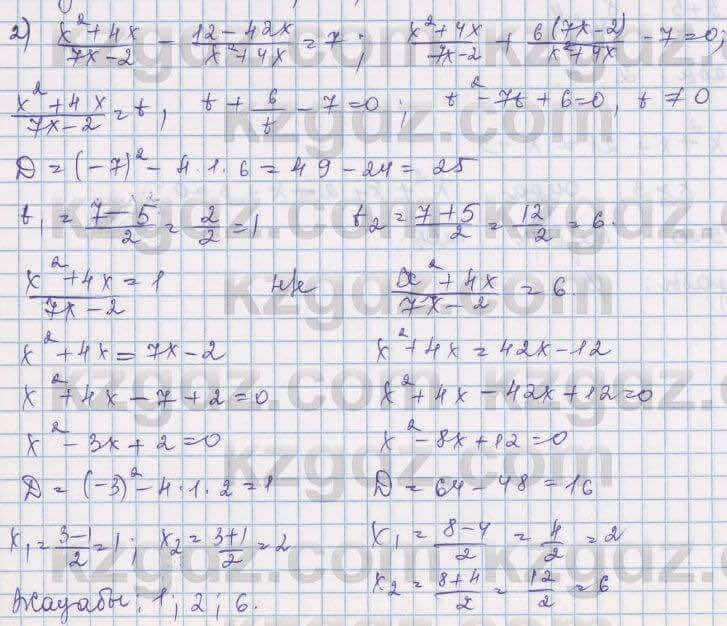 2) (x² + 4x)/(7x - 2) - (12 - 42x)/(x² + 4x) = 7 ; (x² + 4x)/(7x - 2) + 6(7x - 2)/(x² + 4x) - 7 = 0;
(x² + 4x)/(7x - 2) = t, t + 6/t - 7 = 0 ; t² - 7t + 6 = 0, t ≠ 0
D = (-7)² - 4·1·6 = 49 - 24 = 25
t₁ = (7 - 5)/2 = 2/2 = 1 t₂ = (7 + 5)/2 = 12/2 = 6.
(x² + 4x)/(7x - 2) = 1 н/е (x² + 4x)/(7x - 2) = 6.
x² + 4x = 7x - 2 x² + 4x = 42x - 12
x² + 4x - 7 + 2 = 0 x² + 4x - 42x + 12 = 0
x² - 3x + 2 = 0 x² - 8x + 12 = 0
D = (-3)² - 4·1·2 = 1 D = 64 - 48 = 16
x₁ = (3 - 1)/2 = 1 ; x₂ = (3 + 1)/2 = 2 x₁ = (8 - 4)/2 = 4/2 = 2
x₂ = (8 + 4)/2 = 12/2 = 6
Жауабы: 1 ; 2 ; 6.
kzgdz.com